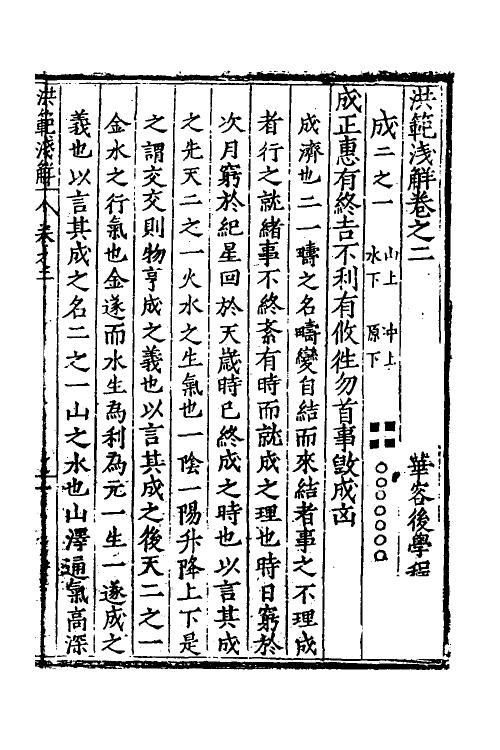 洪範淺解卷之二
華容後學程
成 二之一 山上 水下 冲上 原下
成正惠有終吉不利有攸徃勿首事毀成凶
成濟也二一疇之名疇變自結而來結者事之不理成
者行之就緒事不終紊有時而就成之理也時日窮於
次月窮於紀星回於天歲時已終成之時也以言其成
之先天二之一火水之生氣也一陰一陽升降上下是
之謂交交則物亨成之義也以言其成之後天二之一
金水之行氣也金遂而水生為利為元一生一遂成之
義也以言其成之名二之一山之水也山澤通氣高深
洪範淺解 卷之二